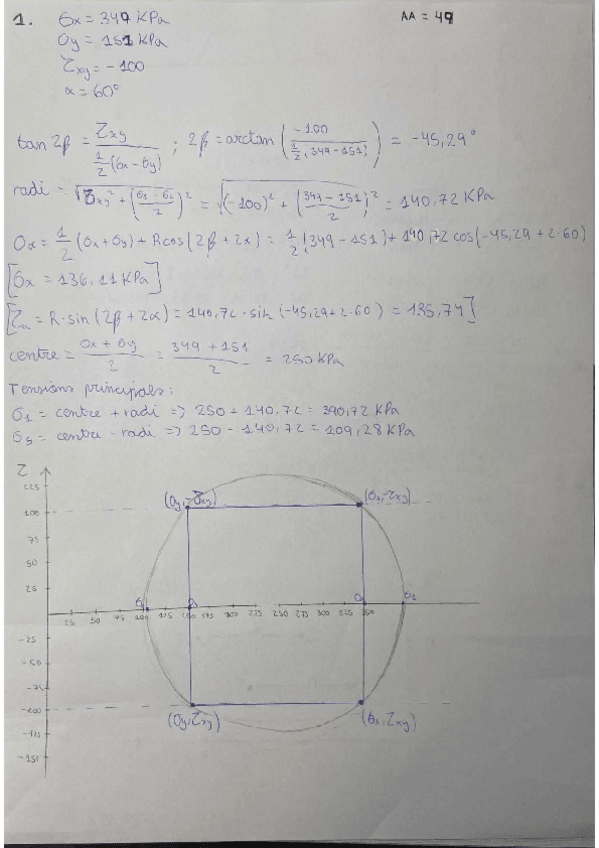 1. σx = 349 KPa AA = 49
σy = 151 KPa
τxy = -100
α = 60°
tan 2β = τxy / (1/2 (σx - σy)) ; 2β = arctan (-100 / (1/2 (349 - 151))) = -45,29°
radi = √(τxy² + ((σx - σy)/2)²) = √((-100)² + ((349 - 151)/2)²) = 140,72 KPa
σα = 1/2 (σx + σy) + R cos(2β + 2α) = 1/2 (349 - 151) + 140,72 cos(-45,29 + 2·60)
[σx = 136,11 KPa]
[τα = R·sin (2β + 2α) = 140,72 · sin (-45,29 + 2·60) = 135,74]
centre = (σx + σy)/2 = (349 + 151)/2 = 250 KPa
Tensions principals:
σ1 = centre + radi => 250 + 140,72 = 390,72 KPa
σ3 = centre - radi => 250 - 140,72 = 109,28 KPa
τ
125
(σy, -τxy) (σx, -τxy)
100
75
50
25
σ1
25 50 75 100 175 200 225 250 275 300 325 350
-25
-50
-75
-100
(σy, τxy) (σx, τxy)
-125
-151